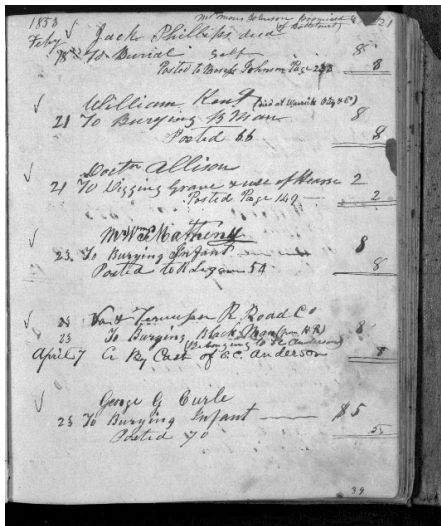 1853 Mr Moses Johnson 21
Feby Jack Phillips dec'd
18 To Burial self 8
Posted to Moses Johnson Page 8
William Kent (Died at
21 To Burying B Man 8
Posted 66 8
Doctor Allison
21 To Digging Grave & use of Hearse 2
Posted Page 149 2
Mr Wm Matheny
23 To Burying Infant 8
Posted to 54 8
23 Va & Tennessee R Road Co
23 To Burying Black Man 8
(Belonging to Anderson)
April 7 By Cash of Anderson 8
George G Curle
23 To Burying Infant $5
Posted 70
39